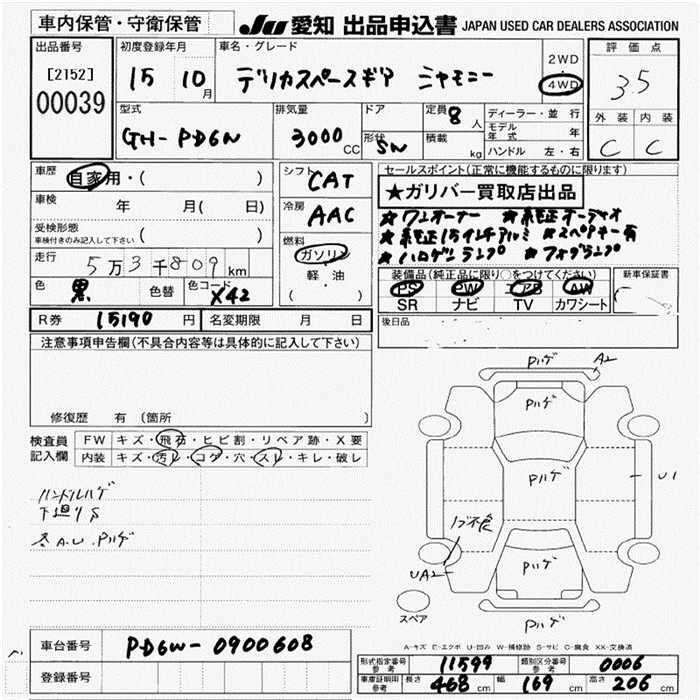 車内保管・守衛保管
JU 愛知 出品申込書 JAPAN USED CAR DEALERS ASSOCIATION
出品番号
[2152]
00039
初度登録年月
15 10月
車名・グレード
デリカスペースギア シャモニー
2WD
・
4WD
評価点
3.5
外装 内装
C C
型式
GH-PD6W
排気量
3000CC
ドア
形状 SW
定員 8人
積載 kg
ディーラー・並行
モデル年式 年
ハンドル 左・右
車歴
自家用・( )
車検 年 月( 日)
受検形態
車検付きのみ記入して下さい ( )
走行 5万3千809km
色 黒 色替 色コード X42
シフト CAT
冷房 AAC
燃料
ガソリン
軽・油
( )
セールスポイント(正常に機能するものに限ります)
★ガリバー買取店出品
★ワンオーナー ★純正オーディオ
★純正15インチアルミ ★スペアキー有
★ハロゲンランプ ★フォグランプ
装備品(純正品に限り○をつけてください)
PS PW エアB AW
SR ナビ TV カワシート
新車保証書
後日品
R券 15190円 名変期限 月 日
注意事項申告欄(不具合内容等は具体的に記入して下さい)
修復歴 有 (箇所
検査員記入欄
FW キズ・飛石・ヒビ割・リペア跡・X要
内装 キズ・汚レ・コゲ・穴・スレ・キレ・破レ
ハンドルハゲ
下廻りS
各A.U.Pハゲ
Pハゲ A2
Pハゲ
Pハゲ
U1
UA2
Pハゲ
Pハゲ
スペア
A-キズ E-エクボ U-凹み W-補修跡 S-サビ C-腐食 XX-交換済
車台番号 PD6W-0900608
登録番号
型式指定番号 参考 11599 類別区分番号 参考 0006
車庫証明用 参考 長さ 468cm 幅 169cm 高さ 206cm